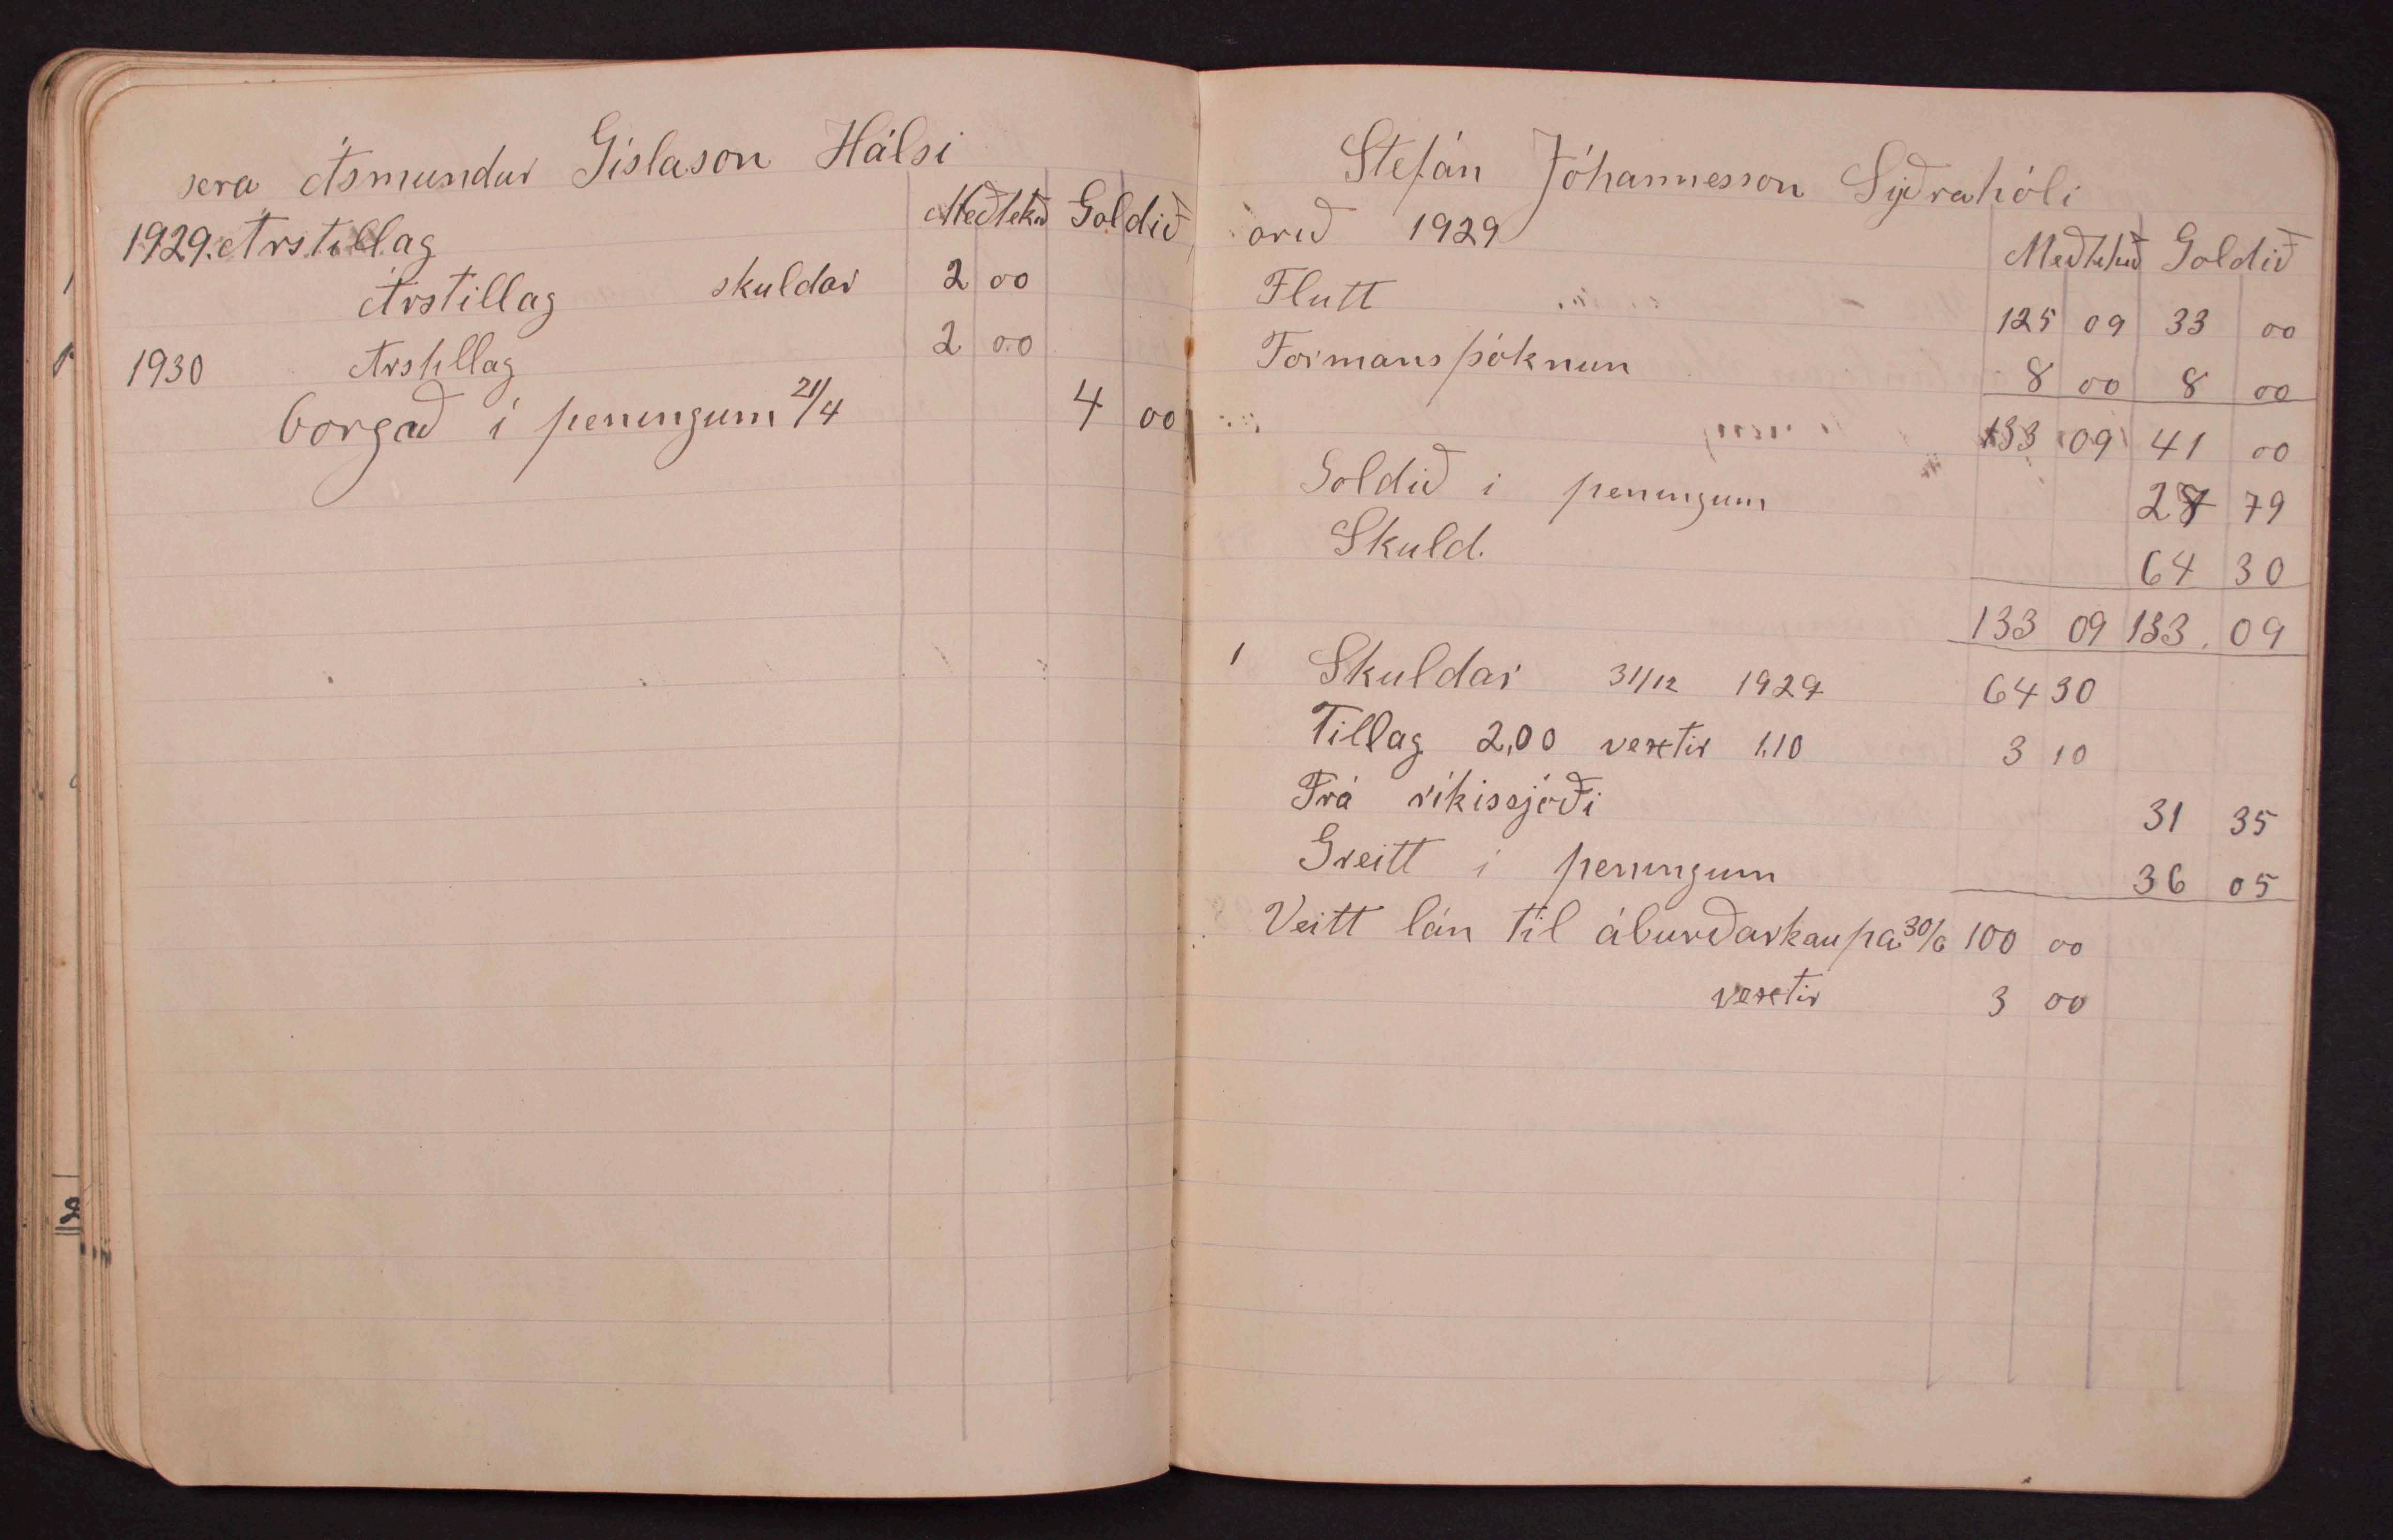 sera Ásmundur Gíslason Hálsi
Meðtekið Goldið
1929. Árstillag
Árstillag skuldar 2 00
1930 Árstillag 2 00
borgað í peningum 21/4 4 00
Stefán Jóhannesson Syðrahóli
árið 1929
Meðtekið Goldið
Flutt 125 09 33 00
Formansþóknun 8 00 8 00
133 09 41 00
Goldið í peningum 27 79
Skuld. 64 30
133 09 133. 09
1 Skuldar 31/12 1929 64 30
Tillag 2,00 vextir 1.10 3 10
Frá ríkissjóði 31 35
Greitt í peningum 36 05
Veitt lán til áburðarkaupa 30/6 100 00
vextir 3 00